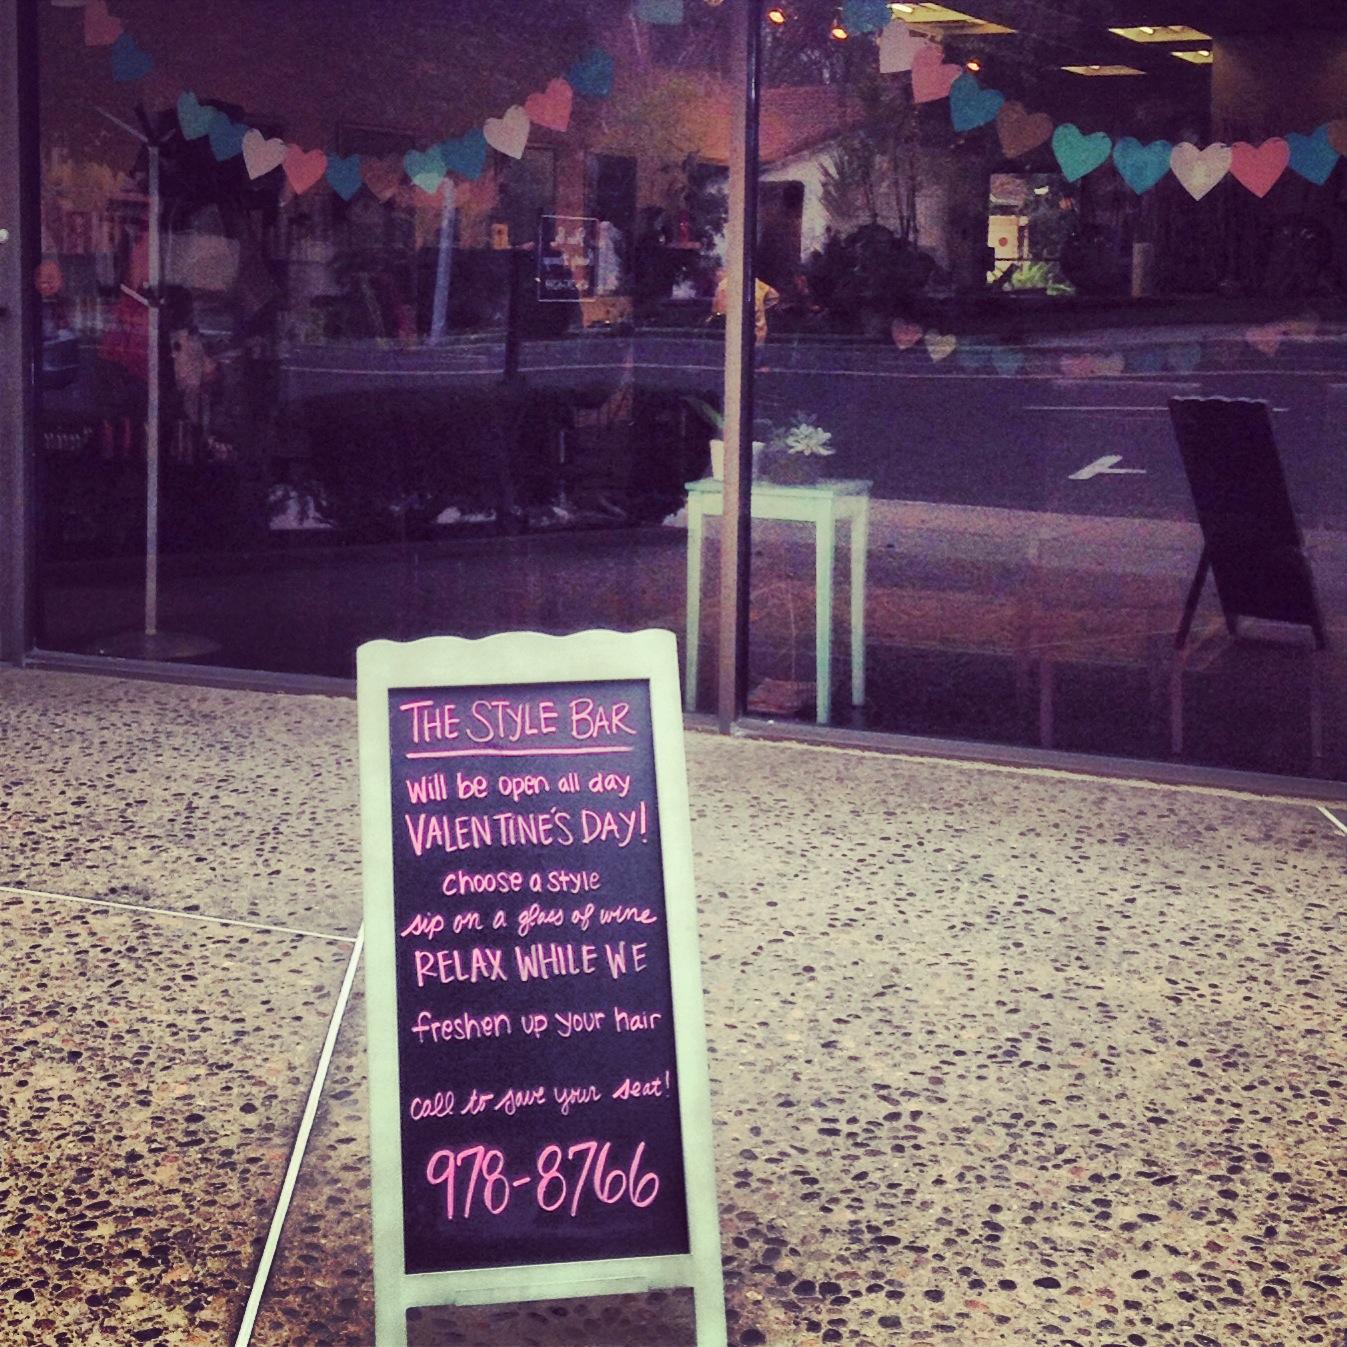 THE STYLE BAR
Will be open all day
VALENTINE'S DAY!
choose a style
sip on a glass of wine
RELAX WHILE WE
freshen up your hair
call to save your seat!
978-8766